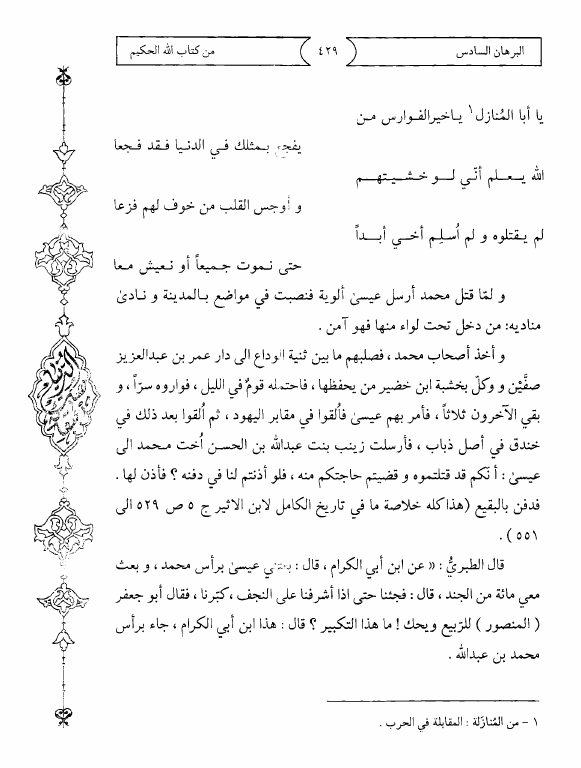 البرهان السادس
٤٢٩
من كتاب الله الحكيم
يا أبا المُنازل ١ يـاخيرالفـوارس مـن
يفجع بـمثلك فـي الدنـيا فـقد فـجعا
الله يـعـلم أنّـي لـو خـشـيتهـم
و أوجس القلب من خوف لهم فزعا
لم يـقتلوه و لم اُسـلِم أخـي أبـداً
حتى نـموت جـميعاً أو نـعيش مـعا
و لمّا قتل محمد أرسل عيسىٰ ألوية فنصبت في مواضع بـالمدينة و نـادىٰ
مناديه: من دخل تحت لواء منها فهو آمن .
و أخذ أصحاب محمد ، فصلبهم ما بين ثنية الوداع الى دار عمر بن عبدالعزيز
صفَّيْن و وكلّ بخشبة ابن خضير من يحفظها ، فاحتمله قومٌ في الليل ، فواروه سرّاً ، و
بقي الآخرون ثلاثاً ، فأمر بهم عيسىٰ فاُلقوا في مقابر اليهود ، ثم اُلقوا بعد ذلك في
خندق في أصل ذباب ، فأرسلت زينب بنت عبدالله بن الحسن اُخت محـمد الى
عيسىٰ : أنكم قد قتلتموه و قضيتم حاجتكم منه ، فلو أذنتم لنا في دفنه ؟ فأذن لها .
فدفن بالبقيع (هذا كله خلاصة ما في تاريخ الكامل لابن الاثير ج ٥ ص ٥٢٩ الى
٥٥١ ) .
قال الطبريُّ : « عن ابن أبي الكرام ، قال : بعثني عيسىٰ برأس محمد ، و بعث
معي مائة من الجند ، قال : فجئنا حتى اذا أشرفنا على النجف ، كبّرنا ، فقال أبو جعفر
( المنصور ) للرّبيع ويحك ! ما هذا التكبير ؟ قال : هذا ابن أبي الكرام ، جاء برأس
محمد بن عبدالله .
١ - من المُنازَلة : المقابلة في الحرب .